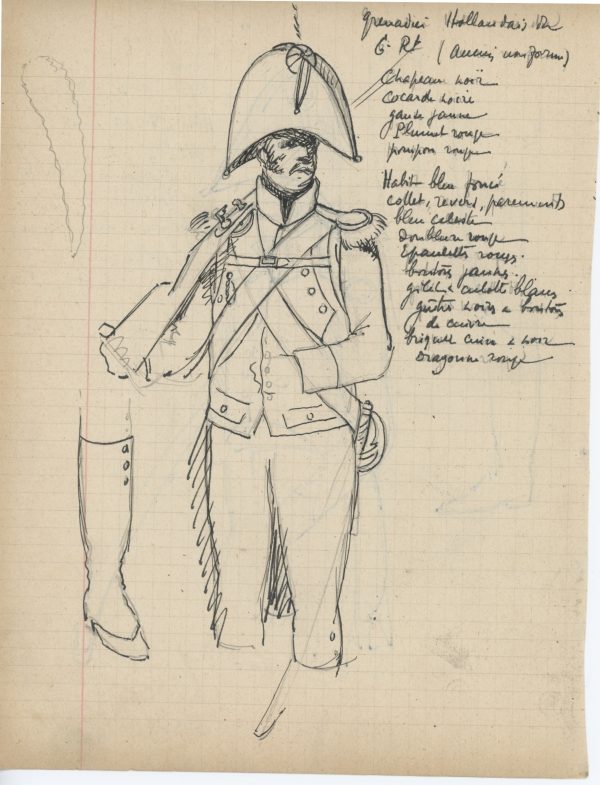 Grenadier Hollandais du
6e Rt (ancien uniforme)
Chapeau noir
cocarde noire
ganse jaune
Plumet rouge
pompon rouge
Habit bleu foncé
collet, revers, parements
bleu celeste
Doublure rouge
Epaulettes rouges.
boutons jaunes.
gilet & culotte blancs
guêtres noires à boutons
de cuivre
briquet cuivre & noir
Dragonne rouge